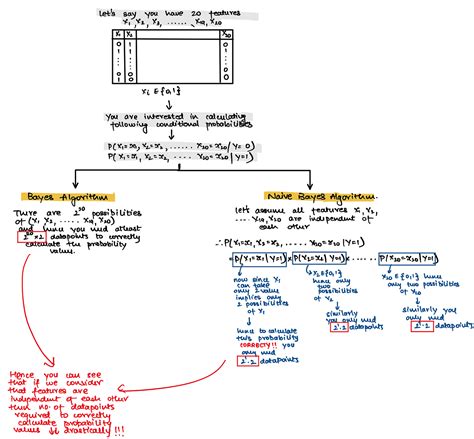 Let's say you have 20 features
X1, X2, X3, ...... X19, X20
X1 X2 X20
0 0
1 1
1 0
0 1
xi ∈ {0,1}
You are interested in calculating
following conditional probabilities
P(X1=x1, X2=x2, ...... X20=x20 | Y=0)
P(X1=x1, X2=x2, ...... X20=x20 | Y=1)
Bayes Algorithm
There are 2^20 possibilities
of (X1, X2, ...... X19, X20)
and hence you need atleast
2^20 × 2 datapoints to correctly
calculate the probability
values.
Naive Bayes Algorithm.
Let's assume all features X1, X2,
..... X19, X20 are independent of
each other
∴ P(X1=x1, X2=x2, ...... X20=x20 | Y=1)
= P(X1=x1 | Y=1) × P(X2=x2 | Y=1) × ...... P(X20=x20 | Y=1)
now since X1
can take
only 2 value
implies only
2 possibilities
of X1
hence to calculate
this probability
CORRECTLY!! you
only need
2^1·2 datapoints
X2 ∈ {0,1}
hence only
two
possibilities
of X2
similarly
you only need
2^1·2 datapoints
X20 ∈ {0,1} hence
only two possibilities
of X20
similarly you
only need
2^1·2 datapoints
Hence you can see
that if we consider
that features are
independent of each other
then no. of datapoints
required to correctly
calculate probability
values ↓↓ drastically!!!